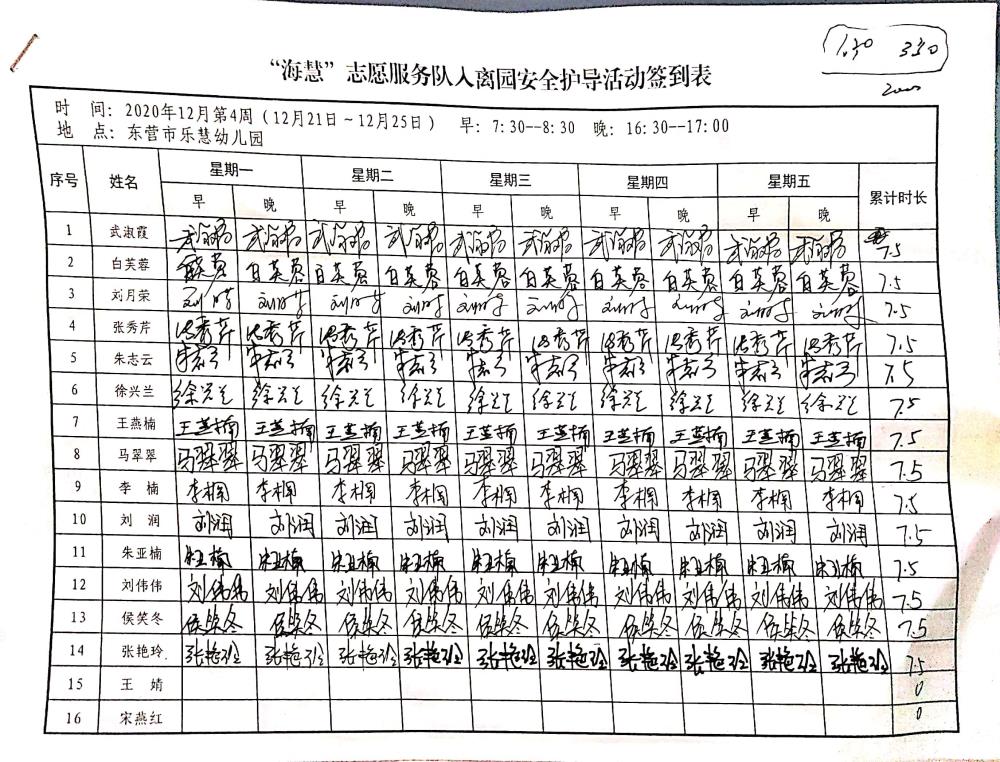 1.30 330
“海慧”志愿服务队入离园安全护导活动签到表
时 间：2020年12月第4周（12月21日～12月25日） 早：7:30--8:30 晚：16:30--17:00
地 点：东营市乐慧幼儿园
序号 姓名 星期一 星期二 星期三 星期四 星期五 累计时长
早 晚 早 晚 早 晚 早 晚 早 晚
1 武淑霞 武淑霞 武淑霞 武淑霞 武淑霞 武淑霞 武淑霞 武淑霞 武淑霞 武淑霞 武淑霞 7.5
2 白芙蓉 白芙蓉 白芙蓉 白芙蓉 白芙蓉 白芙蓉 白芙蓉 白芙蓉 白芙蓉 白芙蓉 7.5
3 刘月荣 刘月荣 刘月荣 刘月荣 刘月荣 刘月荣 刘月荣 刘月荣 刘月荣 刘月荣 刘月荣 7.5
4 张秀芹 张秀芹 张秀芹 张秀芹 张秀芹 张秀芹 张秀芹 张秀芹 张秀芹 张秀芹 张秀芹 7.5
5 朱志云 朱志云 朱志云 朱志云 朱志云 朱志云 朱志云 朱志云 朱志云 朱志云 朱志云 7.5
6 徐兴兰 徐兴兰 徐兴兰 徐兴兰 徐兴兰 徐兴兰 徐兴兰 徐兴兰 徐兴兰 徐兴兰 徐兴兰 7.5
7 王燕楠 王燕楠 王燕楠 王燕楠 王燕楠 王燕楠 王燕楠 王燕楠 王燕楠 王燕楠 王燕楠 7.5
8 马翠翠 马翠翠 马翠翠 马翠翠 马翠翠 马翠翠 马翠翠 马翠翠 马翠翠 马翠翠 马翠翠 7.5
9 李 楠 李楠 李楠 李楠 李楠 李楠 李楠 李楠 李楠 李楠 李楠 7.5
10 刘 润 刘润 刘润 刘润 刘润 刘润 刘润 刘润 刘润 刘润 刘润 7.5
11 朱亚楠 朱亚楠 朱亚楠 朱亚楠 朱亚楠 朱亚楠 朱亚楠 朱亚楠 朱亚楠 朱亚楠 朱亚楠 7.5
12 刘伟伟 刘伟伟 刘伟伟 刘伟伟 刘伟伟 刘伟伟 刘伟伟 刘伟伟 刘伟伟 刘伟伟 刘伟伟 7.5
13 侯笑冬 侯笑冬 侯笑冬 侯笑冬 侯笑冬 侯笑冬 侯笑冬 侯笑冬 侯笑冬 侯笑冬 侯笑冬 7.5
14 张艳玲 张艳玲 张艳玲 张艳玲 张艳玲 张艳玲 张艳玲 张艳玲 张艳玲 张艳玲 张艳玲 7.5
15 王 婧 0
16 宋燕红 0